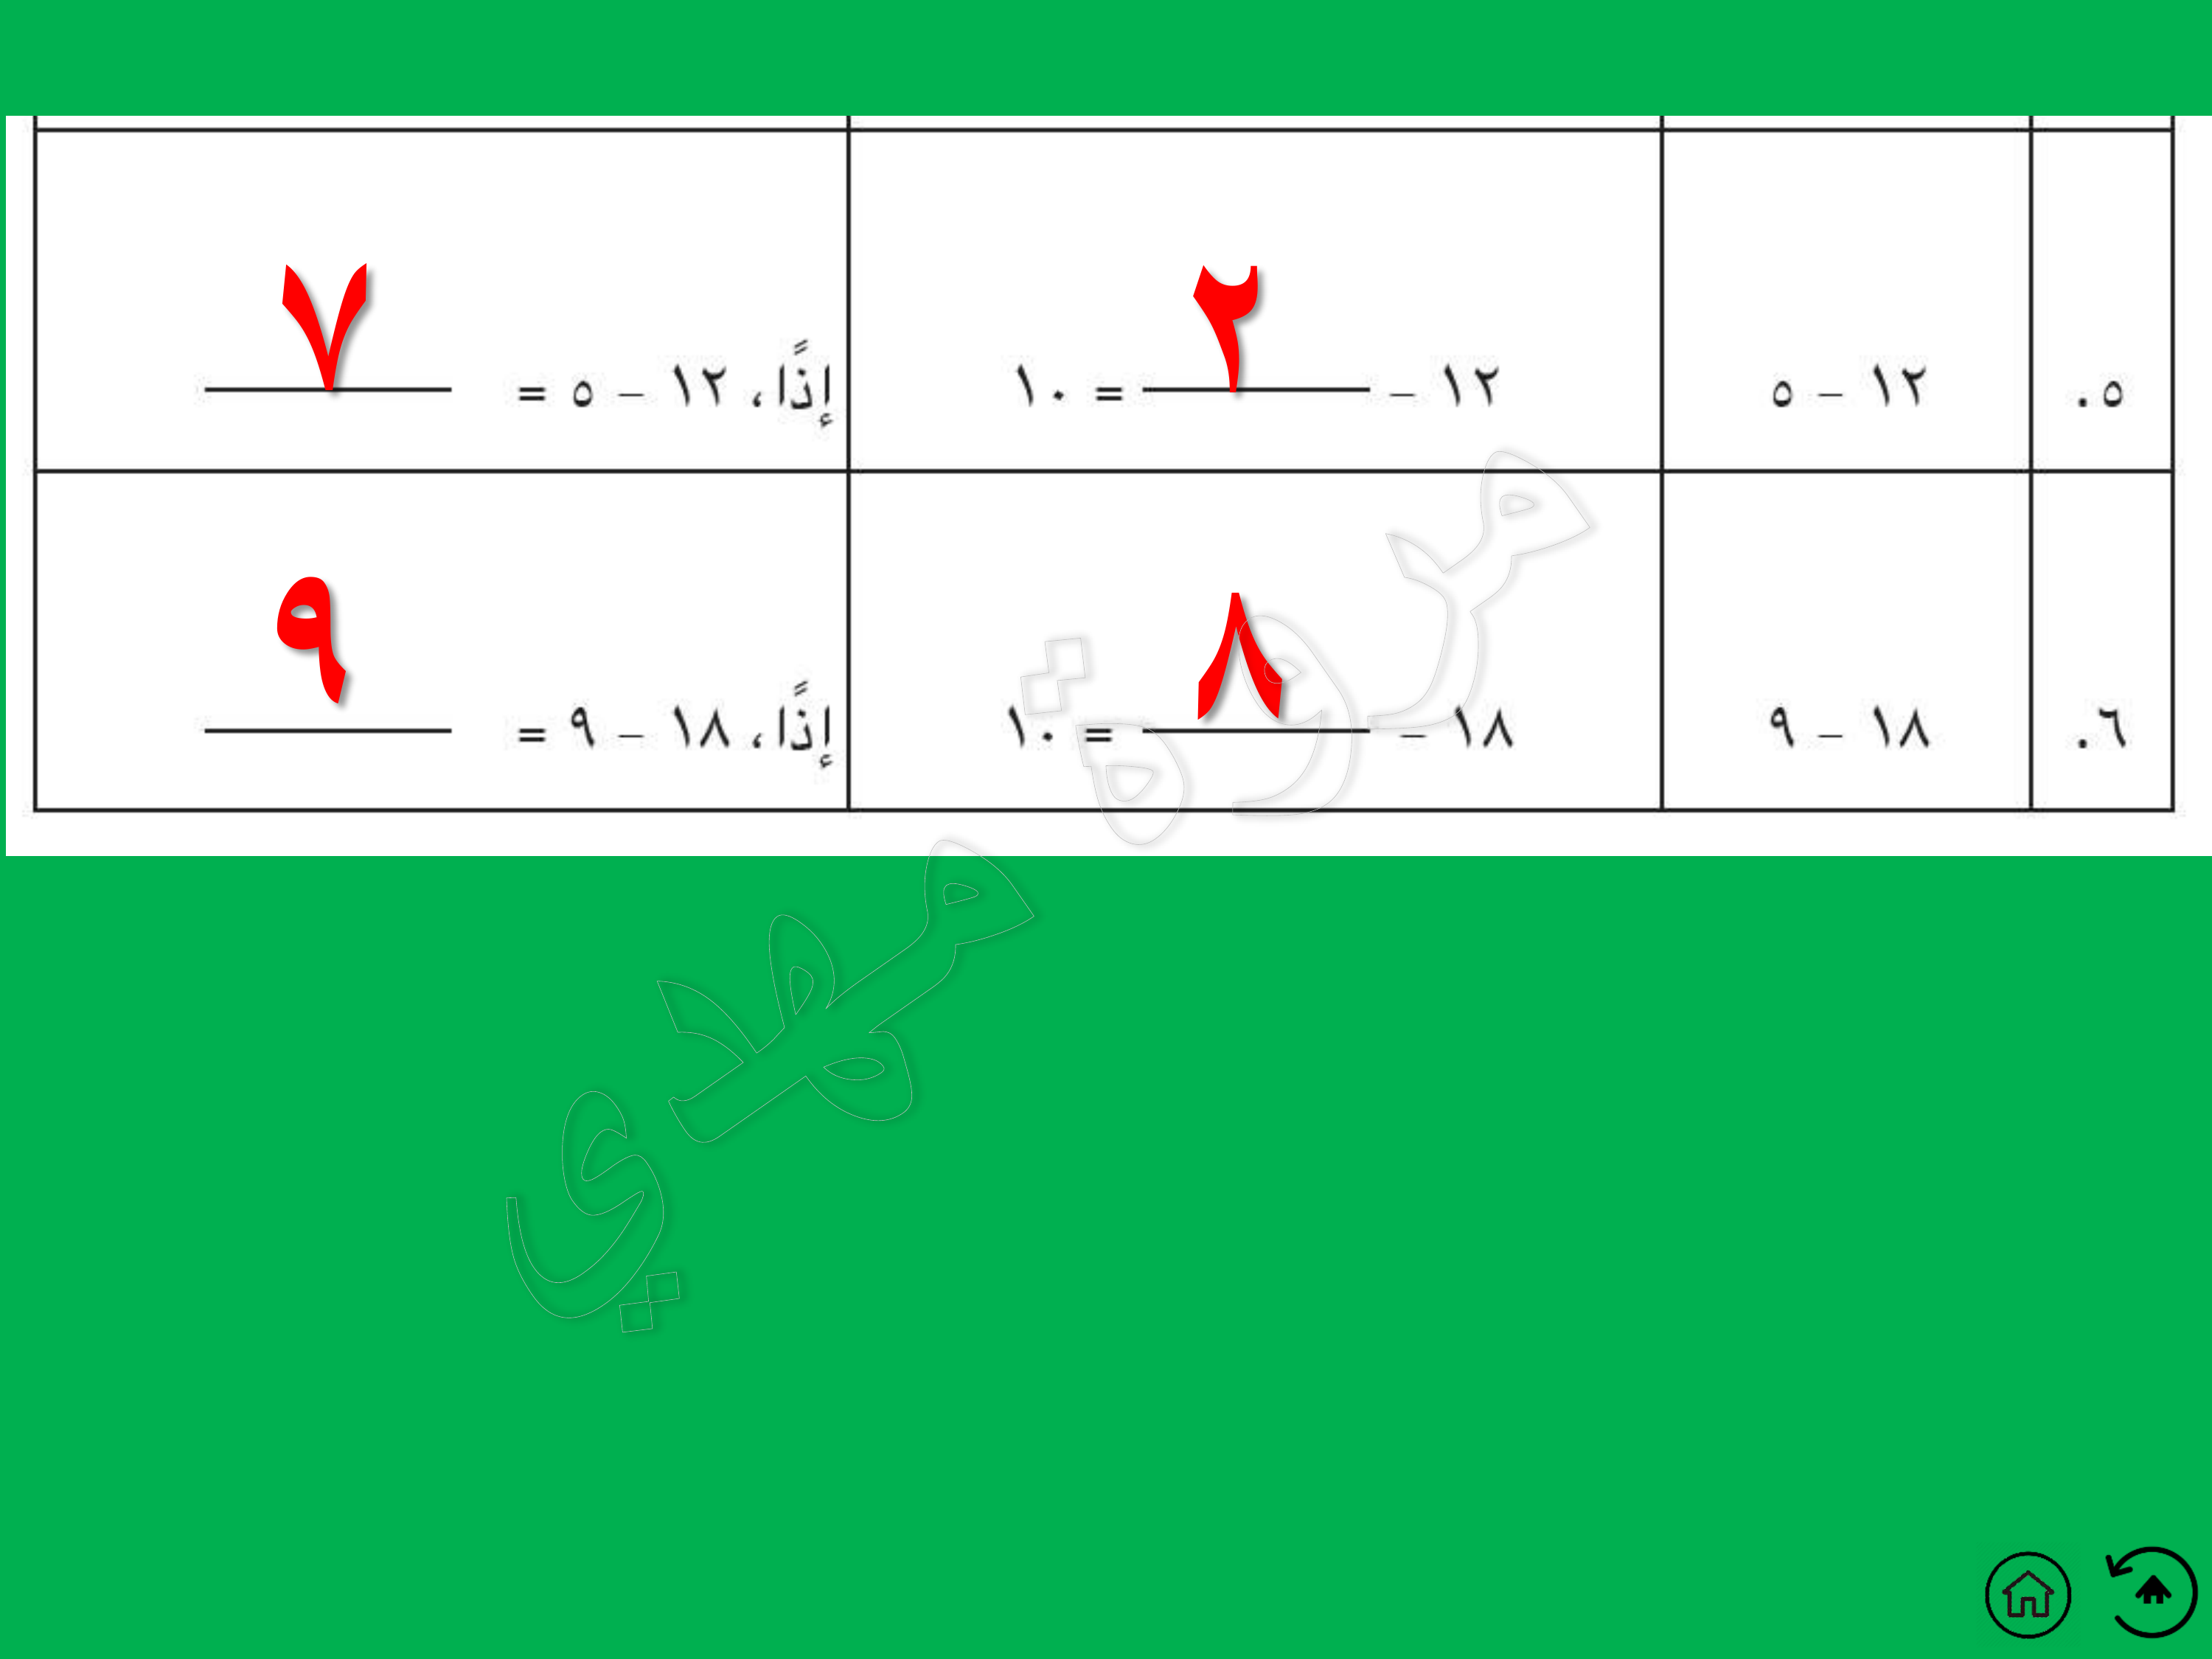 ٥. ١٢ – ٥ ١٢ – ٢ = ١٠ إذًا، ١٢ – ٥ = ٧
٦. ١٨ – ٩ ١٨ – ٨ = ١٠ إذًا، ١٨ – ٩ = ٩
مروة مهدي